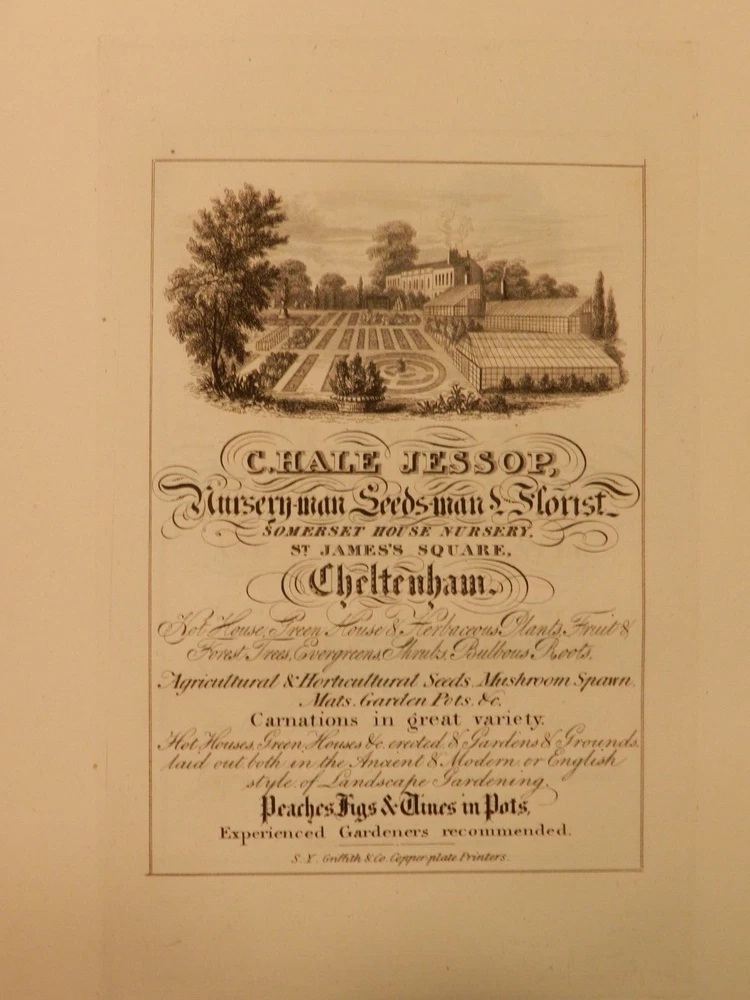 C. HALE JESSOP,
Nursery-man Seeds-man & Florist
SOMERSET HOUSE NURSERY,
ST JAMES'S SQUARE,
Cheltenham.
Hot House, Green House & Herbaceous Plants, Fruit &
Forest Trees, Evergreens, Shrubs, Bulbous Roots,
Agricultural & Horticultural Seeds, Mushroom Spawn,
Mats, Garden Pots, &c.
Carnations in great variety.
Hot Houses, Green Houses &c. erected, & Gardens & Grounds,
laid out both in the Ancient & Modern or English
style of Landscape Gardening.
Peaches, Figs & Vines in Pots,
Experienced Gardeners recommended.
S. Y. Griffith & Co. Copper-plate Printers.